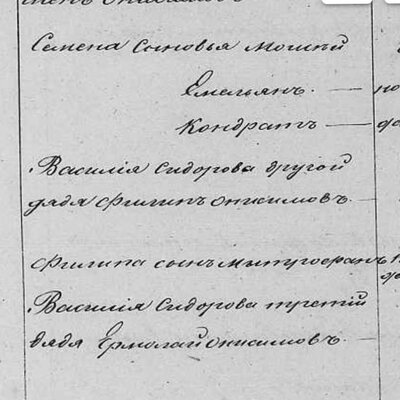 Семена сыновья Мосей
Емельян. — по
Кондратъ — до
Василія Сидорова другой
дядя Филипъ Онисимовъ —
Филипа сынъ Митрофанъ
Василія Сидорова третій
дядя Ермолай Онисимовъ —